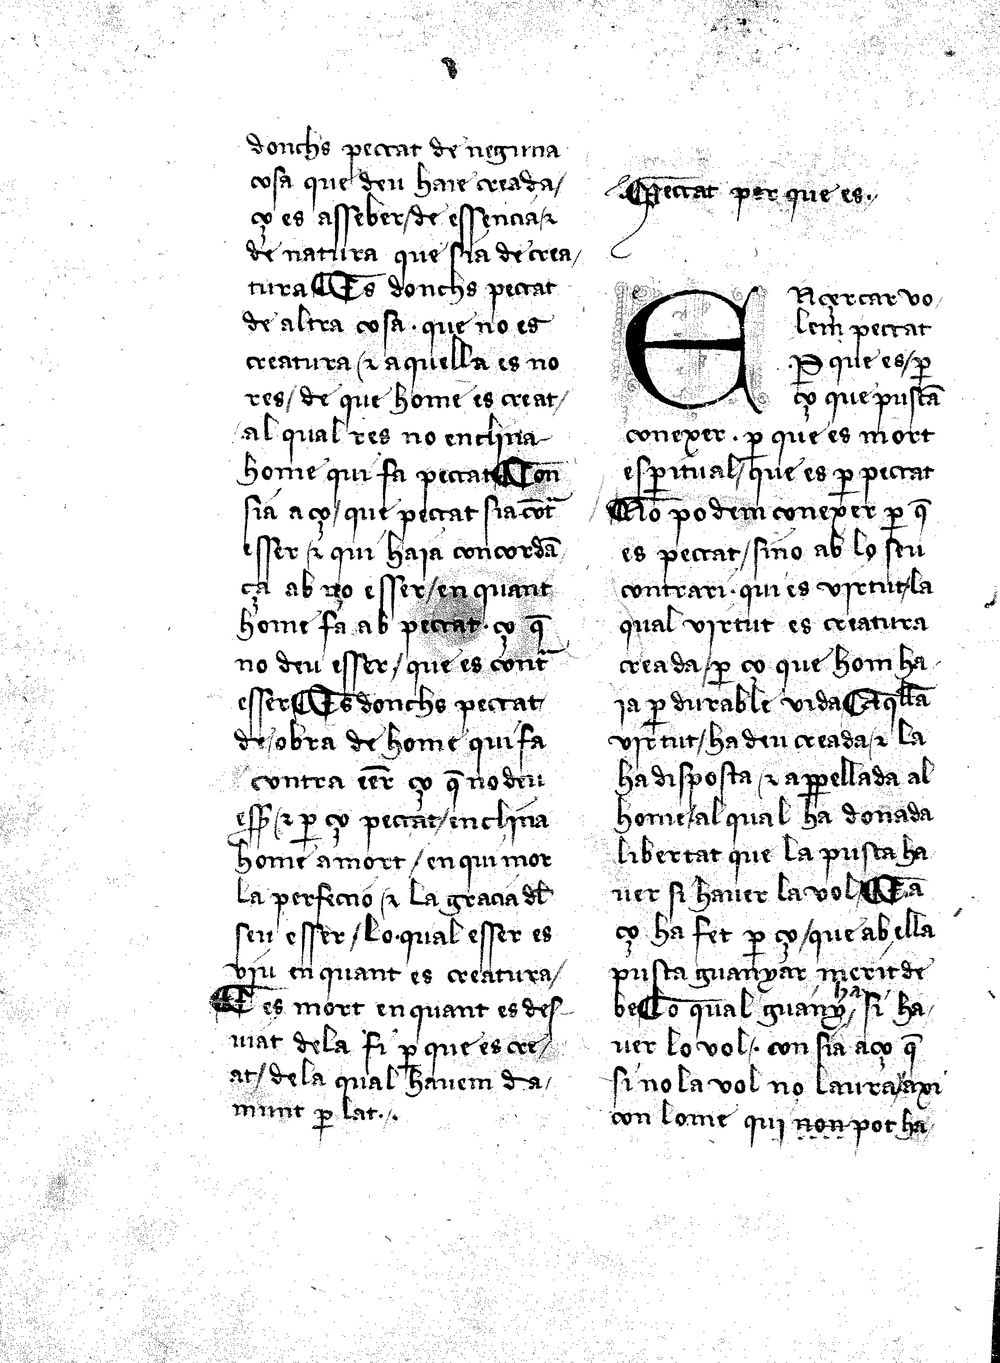 donchs peccat de neguna
cosa que deu haie creada/
ço es asseber/de essencia ⁊
de natura que sia de crea/
tura ¶ Es donchs peccat
de altra cosa · que no es
creatura / ⁊ aquella es no
res/ de que home es creat/
al qual res no enclina
home qui fa peccat ¶ Con
sia aço/que peccat sia cōt̄
esser ⁊ qui haia concordā
ça ab no esser/en quant
home fa ab peccat · ço q̄
no deu esser/que es cont̄
esser ¶ Es donchs peccat
de/obra de home qui fa
contra eēr ço q̄ no deu
esser /⁊ ꝑ ço peccat/enclina
home a mort / en qui mor
la perfeccio / ⁊ la gracia dl̄
seu esser / lo·qual esser es
viu en quant es creatura/
¶ E es mort en quant es des
uiat dela fi ꝑ que es cre/
at/ dela qual hauem da/
munt ꝑlat·.
¶ Peccat per que es·.
EN cercar vo/
lem peccat
·ꝑ que es/ꝑ
ço que puscā
conexer · ꝑ que es mort
esp̄itual/que es ꝑ peccat
¶ No podem conexer ꝑ q̄
es peccat/sino ab lo seu
contrari · qui es virtut/la
qual virtut es creatura
creada/ꝑ ço que hom ha/
ia ꝑdurable vida ¶ Aq̄lla
virtut/ha deu creada/⁊ la
ha disposta /⁊ apꝑellada al
home/al qual ha donada
libertat que la pusca ha
uer si hauer la vol/ ¶ E a
ço ha fet ꝑ ço/que ab ella
pusca guanyar merit de
be ¶ Lo qual guanyha/ si ha/
uer lo vol/· con sia aço q̄
si no la vol no laura/axi
con lome qui non pot ha/